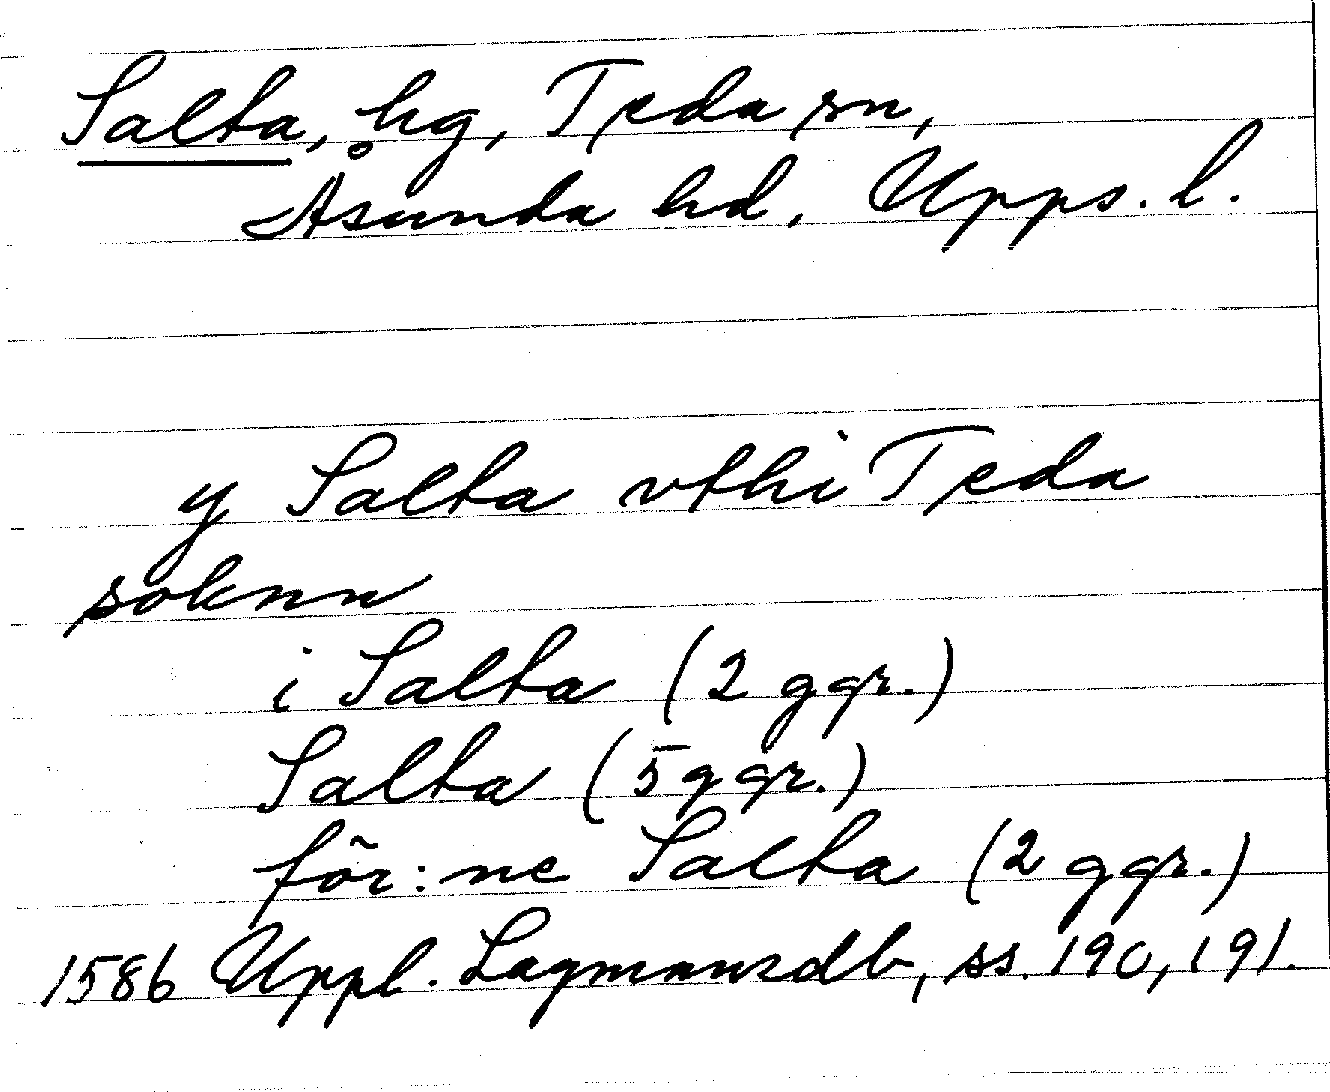 Salta, hg, Teda sn,
Åsunda hd, Upps. l.
y Salta vthi Teda
soknn
i Salta (2 ggr.)
Salta (5 ggr.)
för:ne Salta (2 ggr.)
1586 Uppl. Lagmansdb, ss. 190, 191.